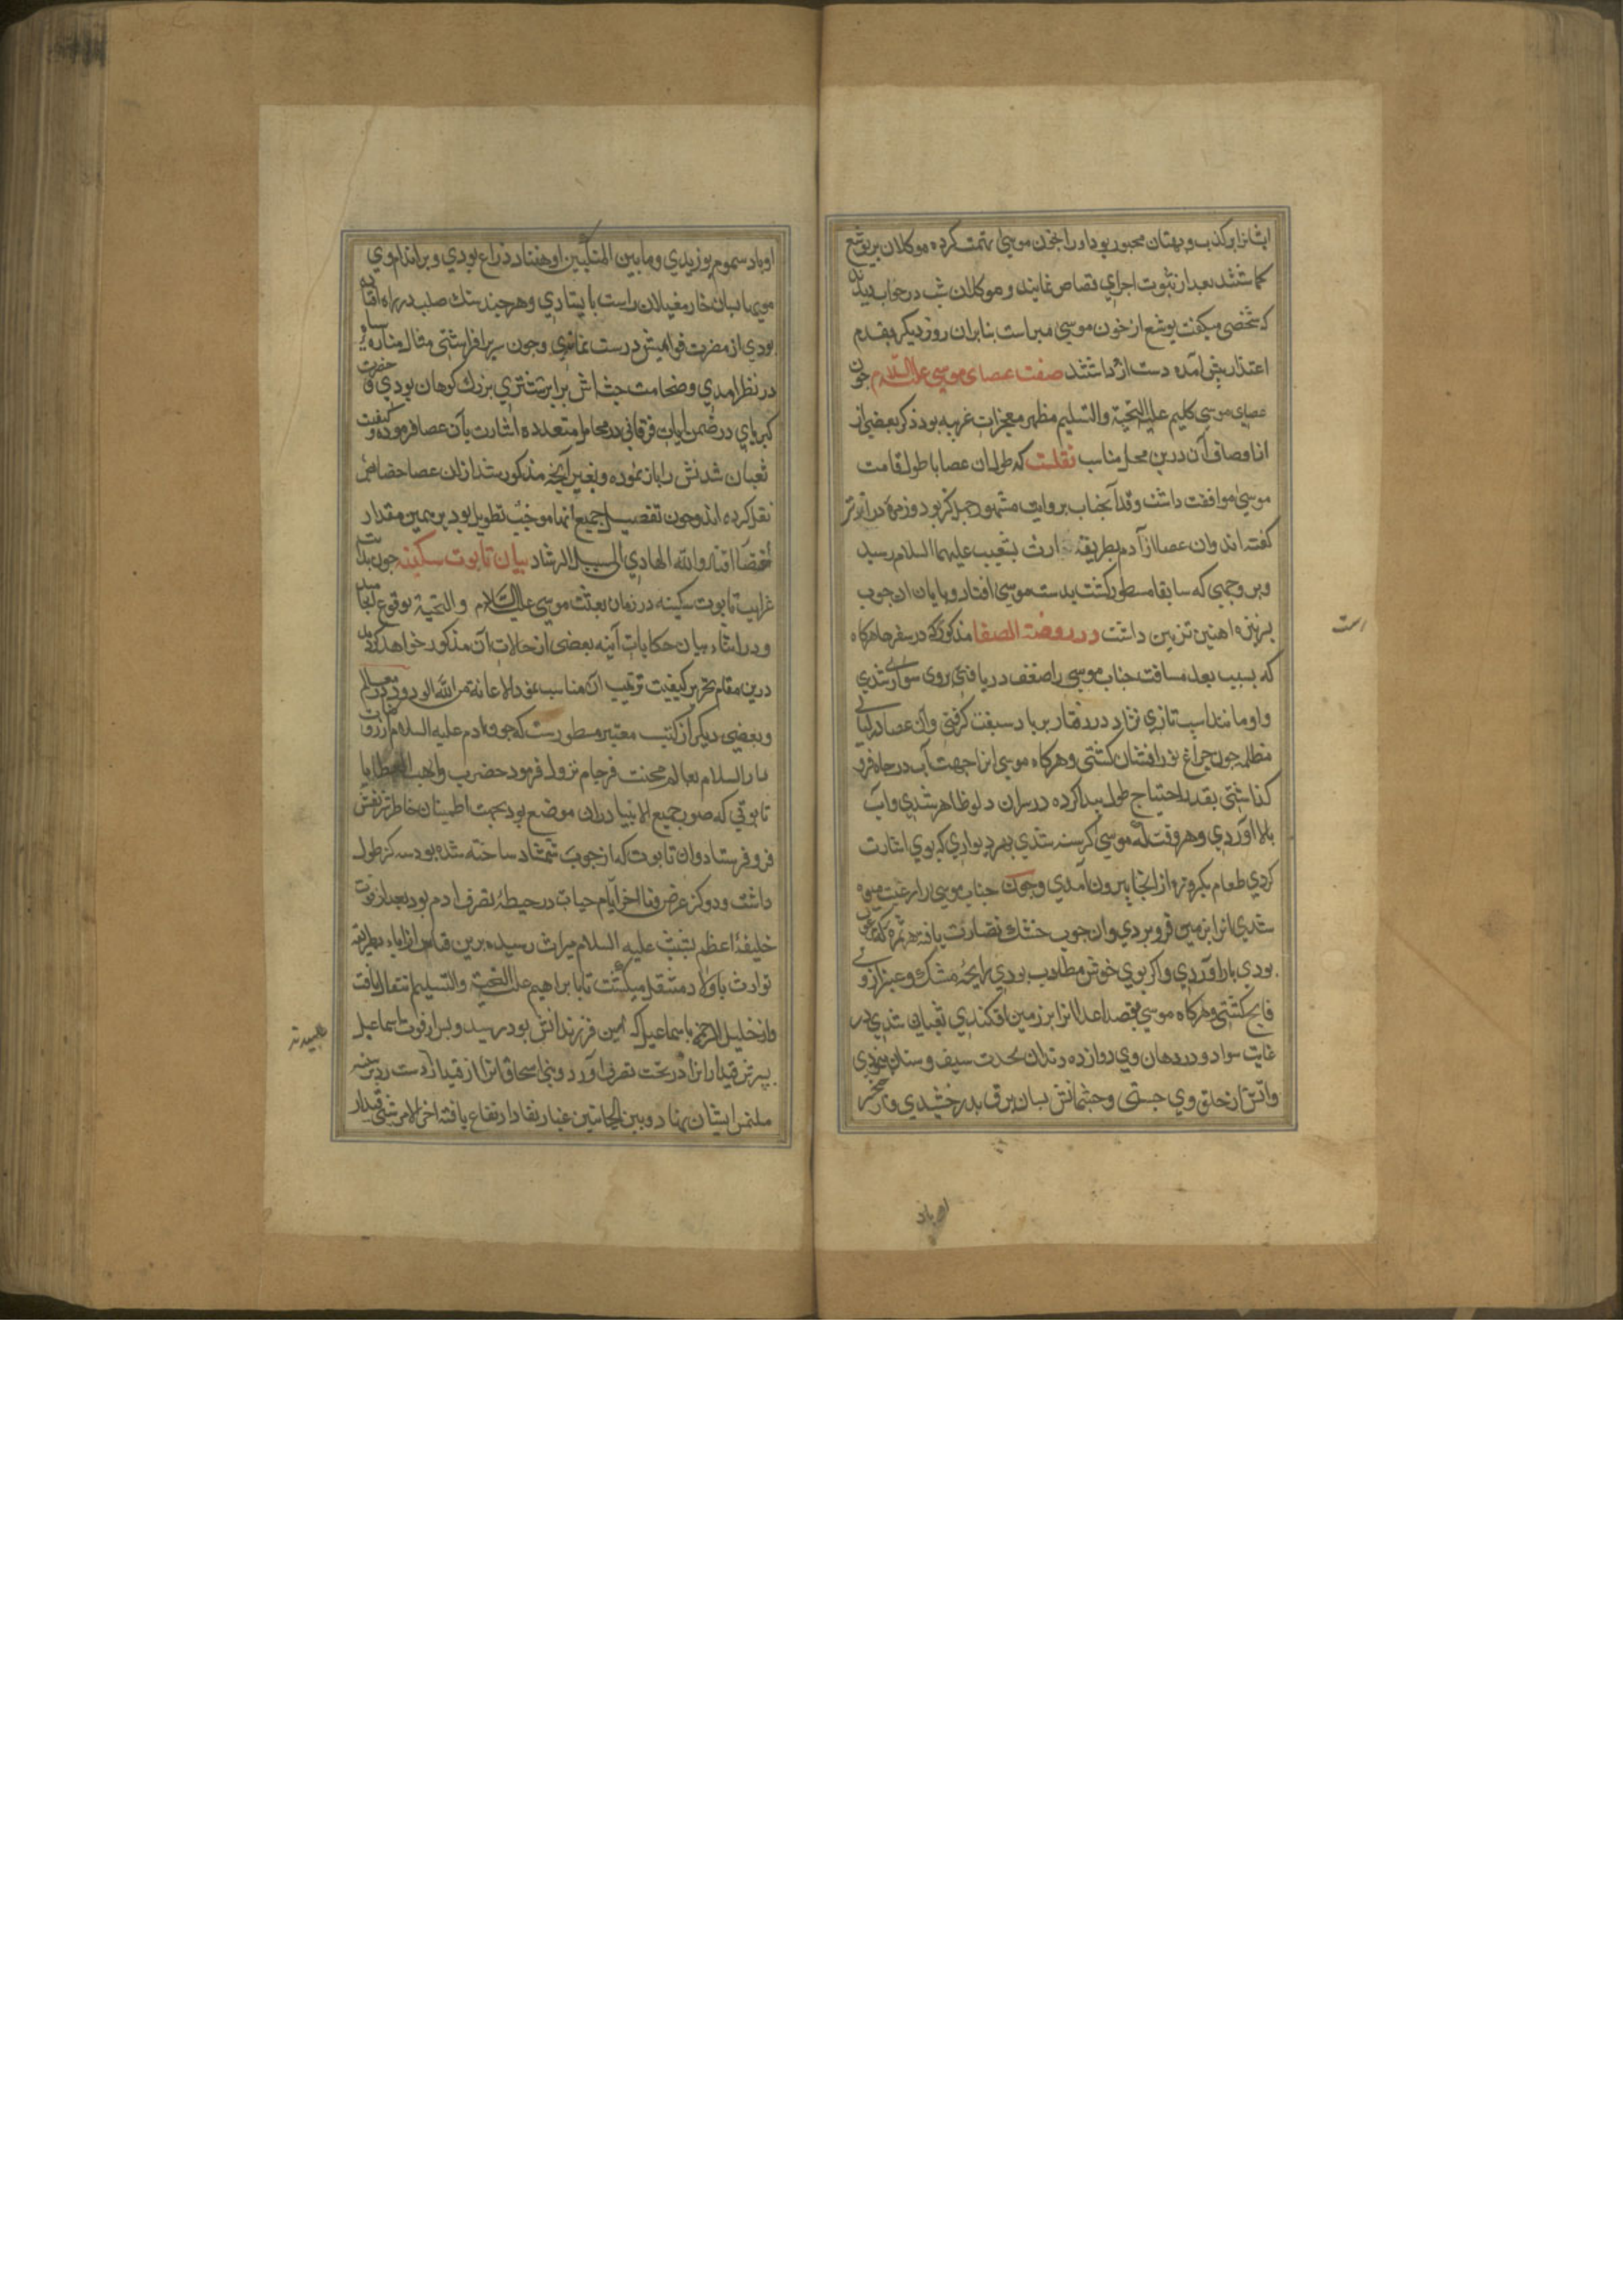 ایشانرا بر کذب و بهتان مجبور بود او را بخون موسی متهم کرده موکلان بر یوشع
کماشتند بعد از ثبوت اجرای قصاص نمایند و موکلان شب در خواب دیدند
که شخصی میکفت یوشع از خون موسی مبراست بنابران روز دیکر بقدم
اعتذار پیش آمده دست ازو داشتند صفت عصای موسی علیه السلام چون
عصای موسی کلیم علیه التحیة والتسلیم مظهر معجزات غریبه بود ذکر بعضی از
اوصاف آن درین محل مناسب نقلست که طول ان عصا با طول قامت
موسی موافقت داشت وقد آنجناب بروایت مشهور چهل کز بود و زمره درازتر
کفته اند وان عصا از آدم بطریقه ارث بشعیب علیهما السلام رسید
وبر وجهی که سابقا مسطور کشت بدست موسی افتاد و پایان ان چوب
بزنیزه اهنین تزیین داشت ودر روضة الصفا مذکور که در سفر هاهرکاه
که بسبب بعد مسافت جناب موسی را ضعف دریافتی بروی سوار شدی
واو مانند اسپ تازی نژاد در رفتار بر باد سبقت کرفتی وان عصا در لیالی
مظلمه چون چراغ نور افشان کشتی وهرکاه موسی انرا جهت آب در چاه فرو
کذاشتی بقدر احتیاج طول پیدا کرده در سران دلو ظاهر شدی وآب
بالا اوردی وهر وقت که موسی کرسنه شدی بهر دیواری که بوی اشارت
کردی طعام یکروزه از انجا بیرون آمدی وچون جناب موسی را رغبت میوه
شدی انرا بزمین فرو بردی وان چوب خشک نضارت یافته هر ثمره که مدعی
بودی بار آوردی واکر بوی خوش مطلوب بودی رایحه مشک وعنبر ازو
فایح کشتی وهرکاه موسی بقصد اعدا انرا بر زمین افکندی ثعبان شدی در
غایت سواد و در دهان وی دوازده دندان بحدت سیف وسنان بودی
واتش از حلق وی جستی وچشمانش بسان برق بدرخشیدی واز منخر
او باد سموم بوزیدی وما بین المنکبین او هفتاد ذراع بودی وبر اندام وی
مویها بسان خار مغیلان راست بایستادی وهر چند سنک صلب در راه افتاده
بودی از مضرت قوایمش درست نماندی وچون سر برافراشتی مثال مناره سیاه
در نظر امدی وضخامت جثه اش برابر شتری بزرک کوهان بودی و حضرت
کبریای در ضمن آیات فرقانی در محامل متعدده اشارت بآن عصا فرموده وکیفیت
ثعبان شدنش را باز نموده وبغیر آنچه مذکور شد ازان عصا خصایص
نقل کرده اند وچون تفصیل جمیع انها موجب تطویل بود بر همین مقدار
اختصار افتاد والله الهادی الی سبیل الرشاد بیان تابوت سکینه چون بدایت
غرایب تابوت سکینه در زمان بعثت موسی علیه السلام والتحیة بوقوع انجامید
ودر اثناء بیان حکایات آینه بعضی از حالات آن مذکور خواهد کردید
درین مقام تحریر کیفیت ترتیب آن مناسب نمود والاعانة من الله الودود در معالم
وبعضی دیکر از کتب معتبر مسطورست که چون آدم علیه السلام از روضات
دار السلام بعالم محنت فرجام نزول فرمود حضرت واهب العطایا
تابوتی که صور جمیع الانبیا دران موضع بود بجهت اطمینان خاطر شریفش
فرو فرستاد وان تابوت که از چوب شمشاد ساخته شده بود سه کز طول
داشت ودو کز عرض وتا اخر ایام حیات در حیطه تصرف ادم بود بعد از فوت
خلیفه اعظم بشیث علیه السلام میراث رسید برین قیاس از اباء بطریقه
توارث باولاد منتقل میکشت تا با براهیم علیه التحیة والتسلیم انتقال یافت
واز خلیل الرحمن باسماعیل که مهین فرزندانش بود رسید وپس از فوت اسماعیل
پسرش قیدار انرا در تحت تصرف آورد وبنی اسحاق انرا از قیدار
ملتمس ایشان نهاد وبین الجانبین غبار نقار ارتفاع یافته اخر الامر شبی قیدار
است
طلبیدند
او باد